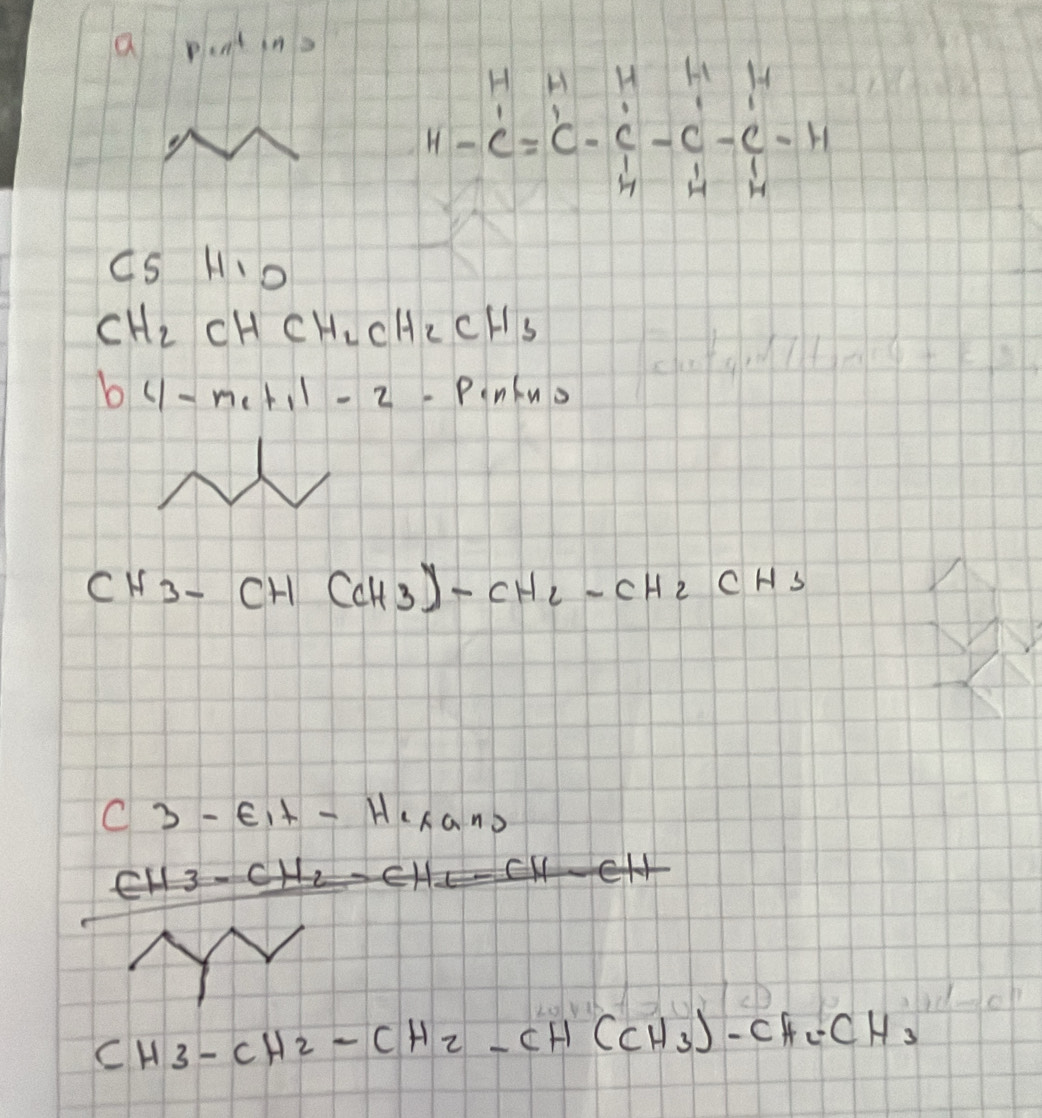 a
H H H H H
H - C = C - C - C - C - H
H H H
C5 H10
CH2 CH CH2 CH2 CH3
b 4 - metil - 2 -
CH3 - CH (CH3) - CH2 - CH2 CH3
C 3 - Eit - Hexano
CH3 - CH2 - CH2 - CH - CH
CH3 - CH2 - CH2 - CH (CH3) - CH2 - CH3